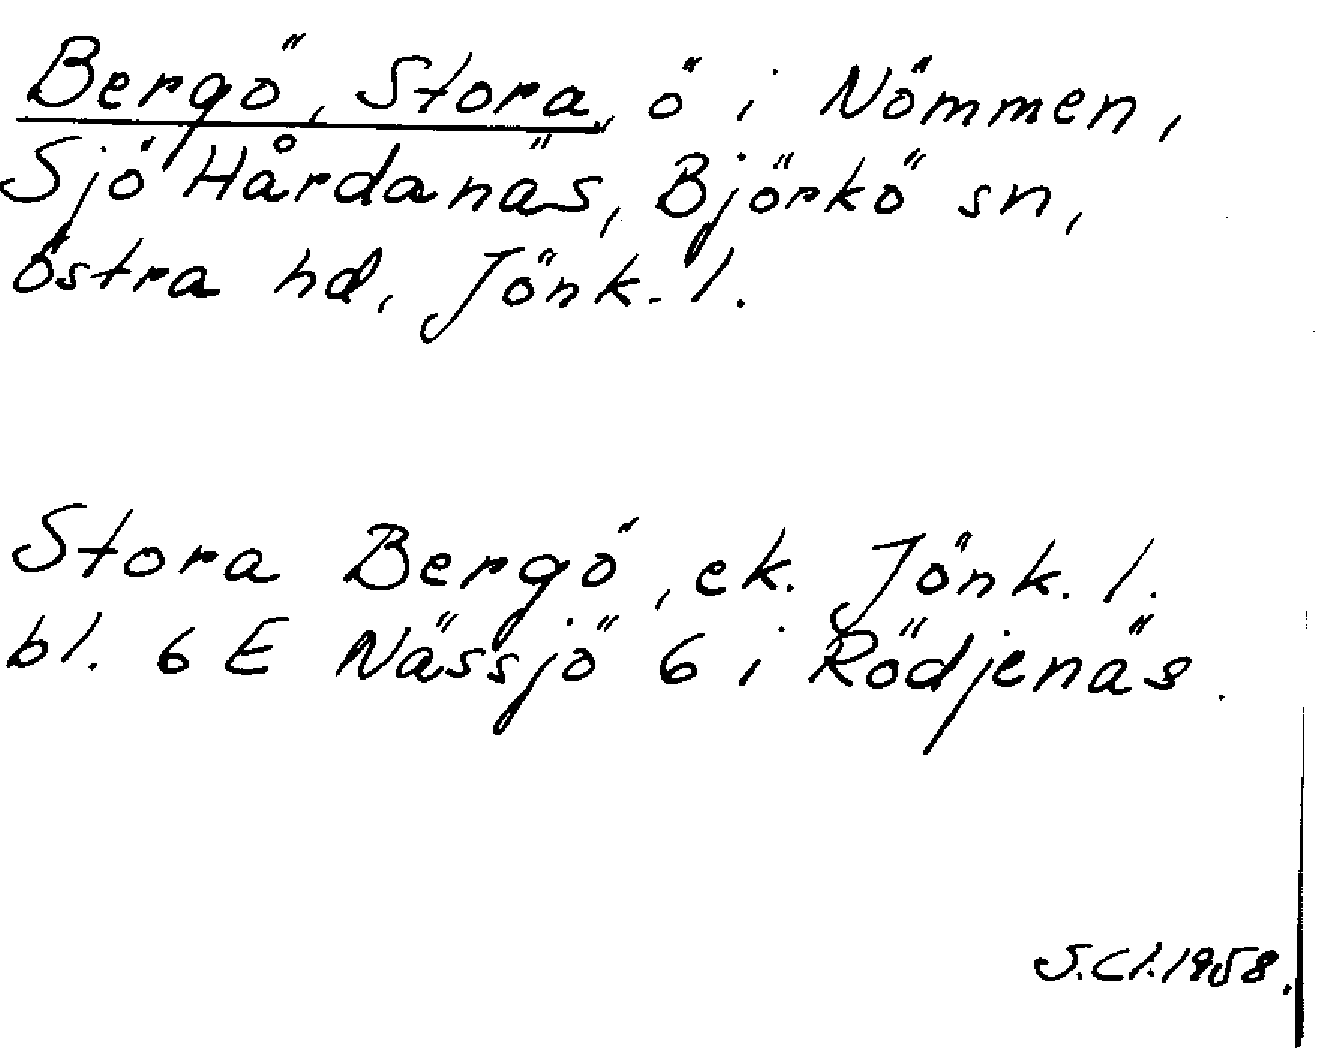 Bergö, Stora, ö i Nömmen,
Sjö Hårdanäs, Björkö sn,
östra hd, Jönk. l.
Stora Bergö, ek. Jönk. l.
bl. 6 E Nässjö 6 i Rödjenäs.
S.Cl.1958.